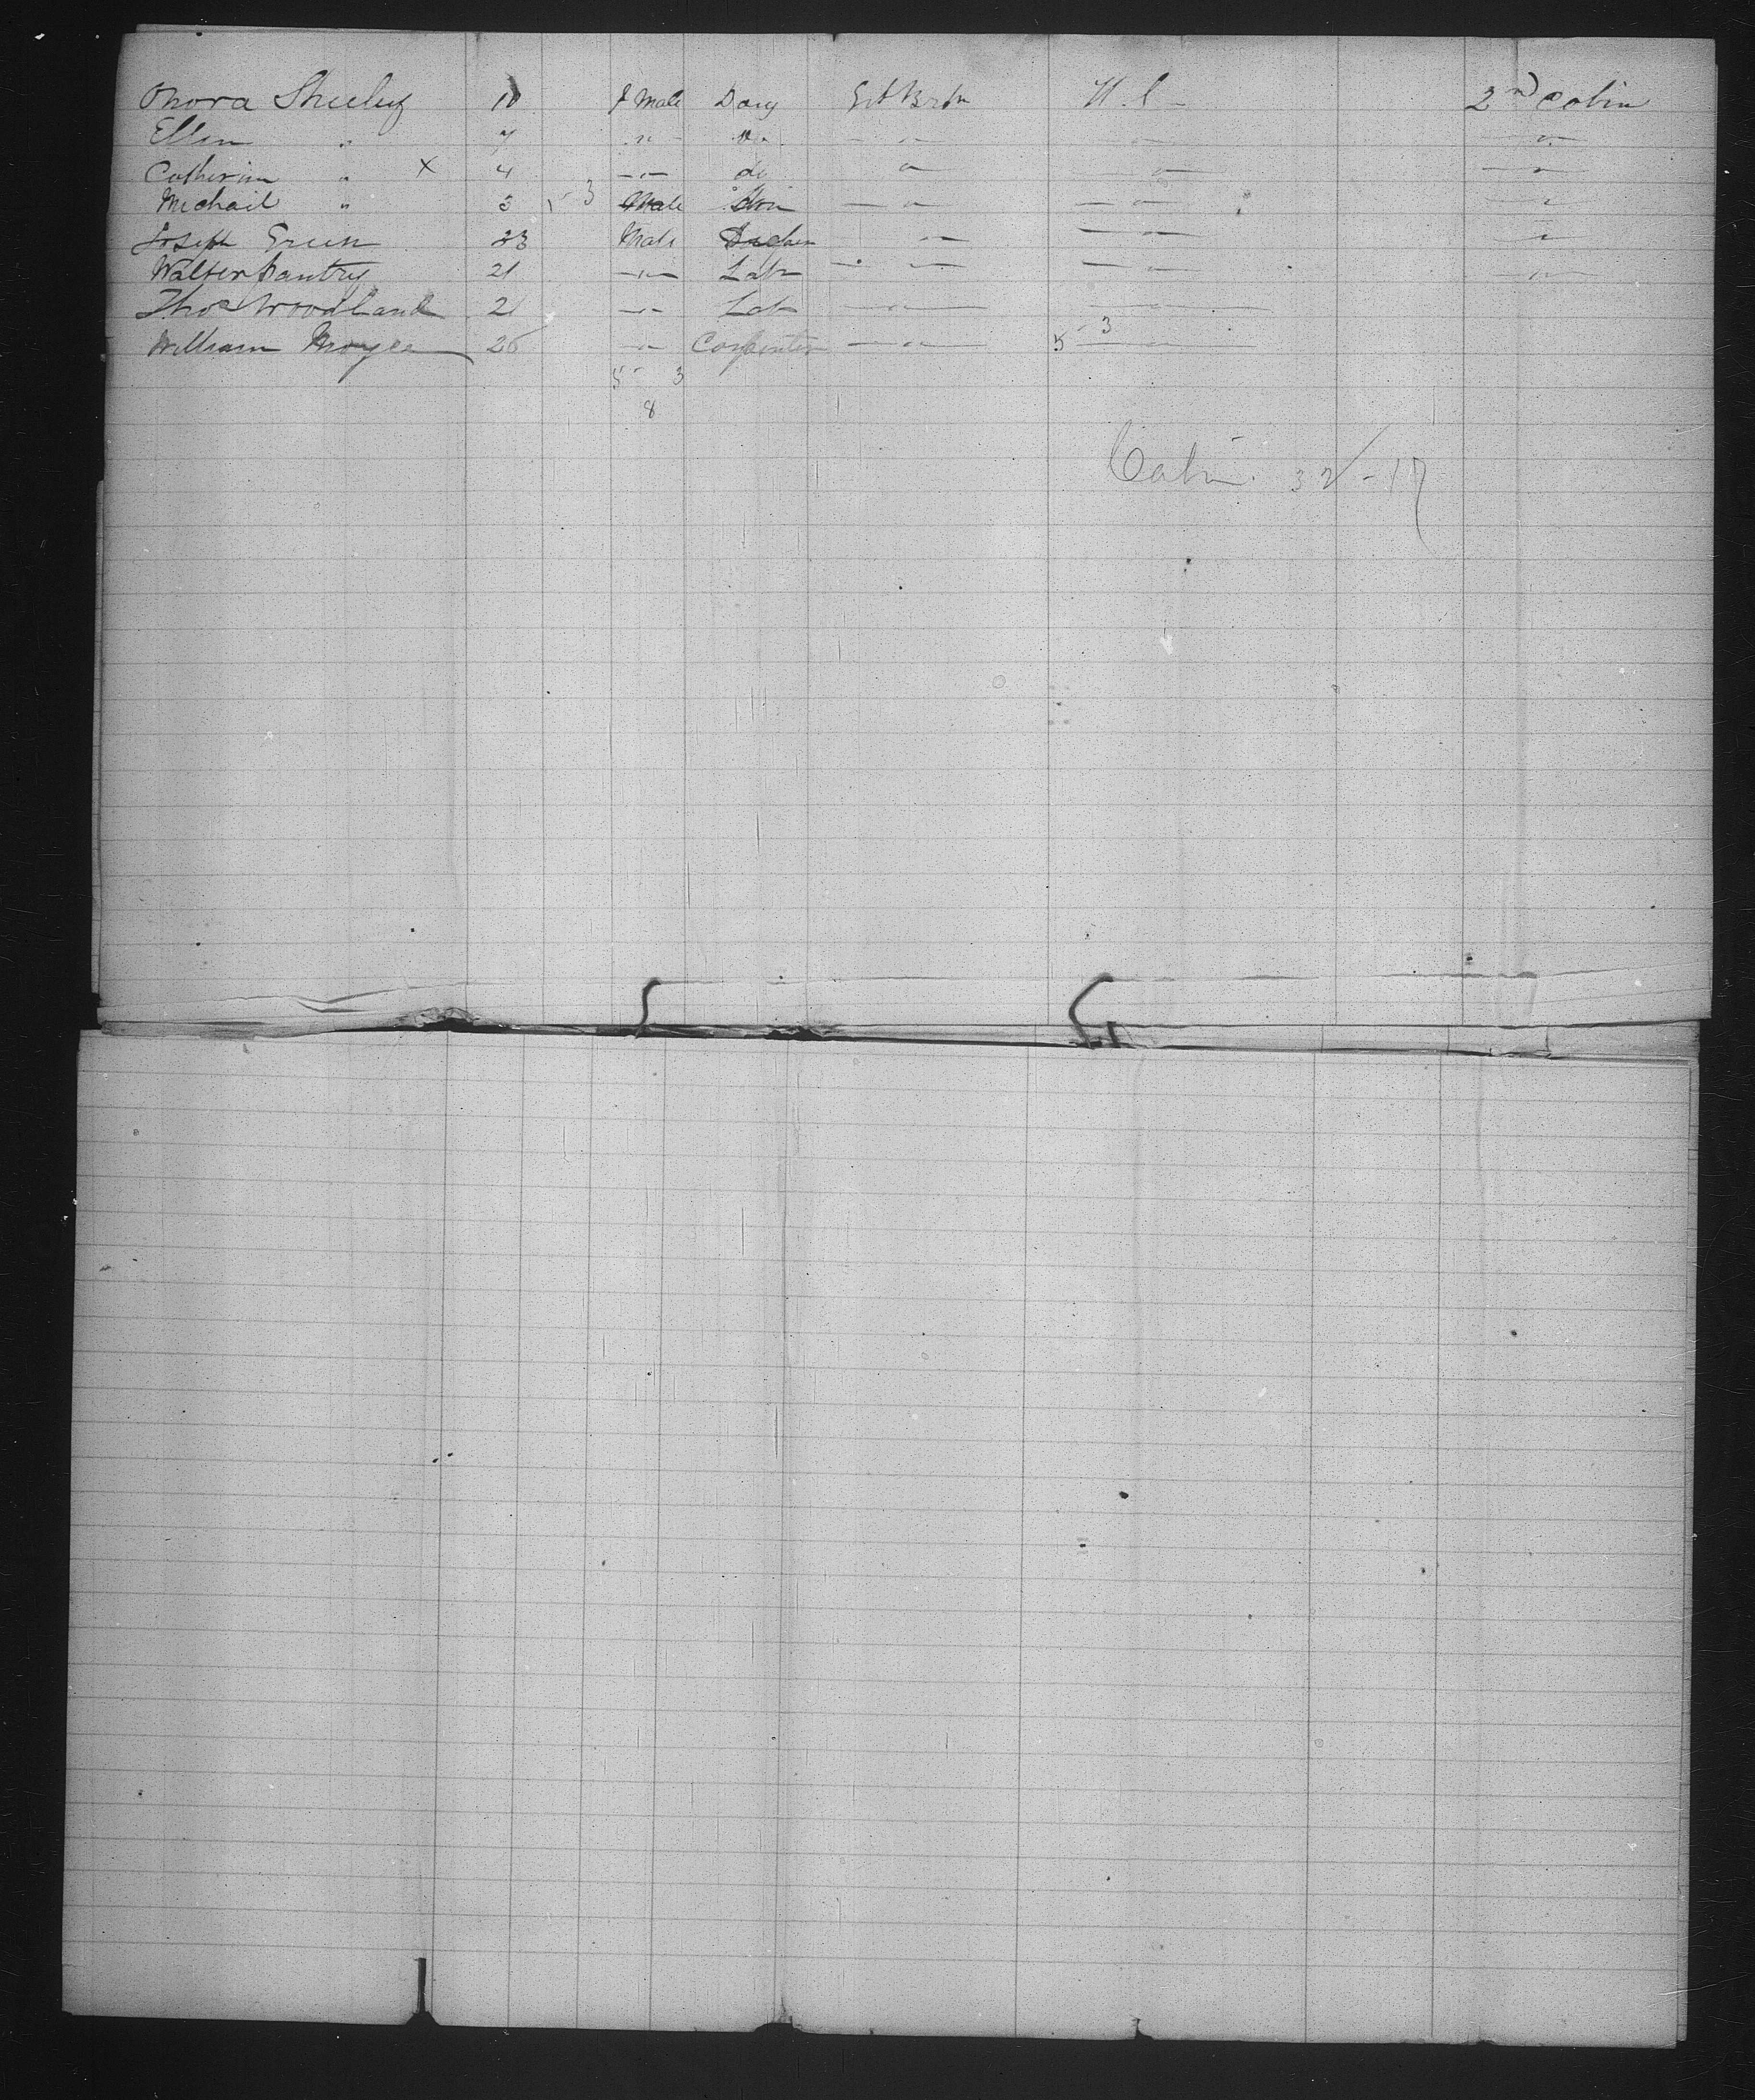 Onora Sheehy 10 F Male Dau Gt Britn U.S - 2nd Cabin
Ellen " 7 -"- do -"- -"- -"-
Catherine " x 4 -"- do " -"- -"-
Michail " 3 5-3 Male Son -"- -"- -"-
Joseph Green 23 Male -"- -"- "
Walter 21 -"- Labr -"- -"- -"-
Thos Woodland 21 -"- Labr -"- -"-
William 25 -"- Carpenter -"- 5-3 -"-
5 - 3
8
Cabin 32-17